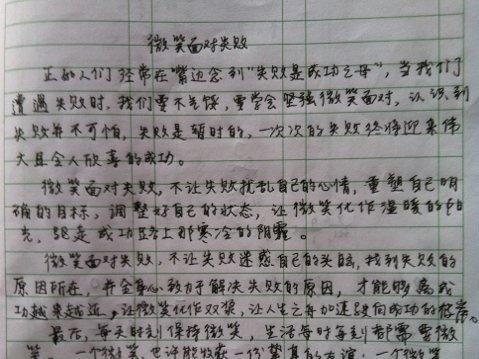 微笑面对失败
正如人们经常在嘴边念到“失败是成功之母”，当我们
遭遇失败时，我们要不气馁，要学会坚强微笑面对，认识到
失败并不可怕，失败是暂时的，一次次的失败终将迎来伟
大且令人欣喜的成功。
微笑面对失败，不让失败扰乱自己的心情，重塑自己明
确的目标，调整好自己的状态，让微笑化作温暖的阳
光，驱走成功路上那寒冷的阴霾。
微笑面对失败，不让失败迷惑自己的头脑，找到失败的
原因所在，并全身心致力于解决失败的原因，才能够离成
功越来越近，让微笑化作双桨，让人生之舟加速驶向成功的彼岸。
最后，每天时刻保持微笑，生活每时每刻都需要微
笑，一个微笑也许能收获一份
的友谊，一个微笑